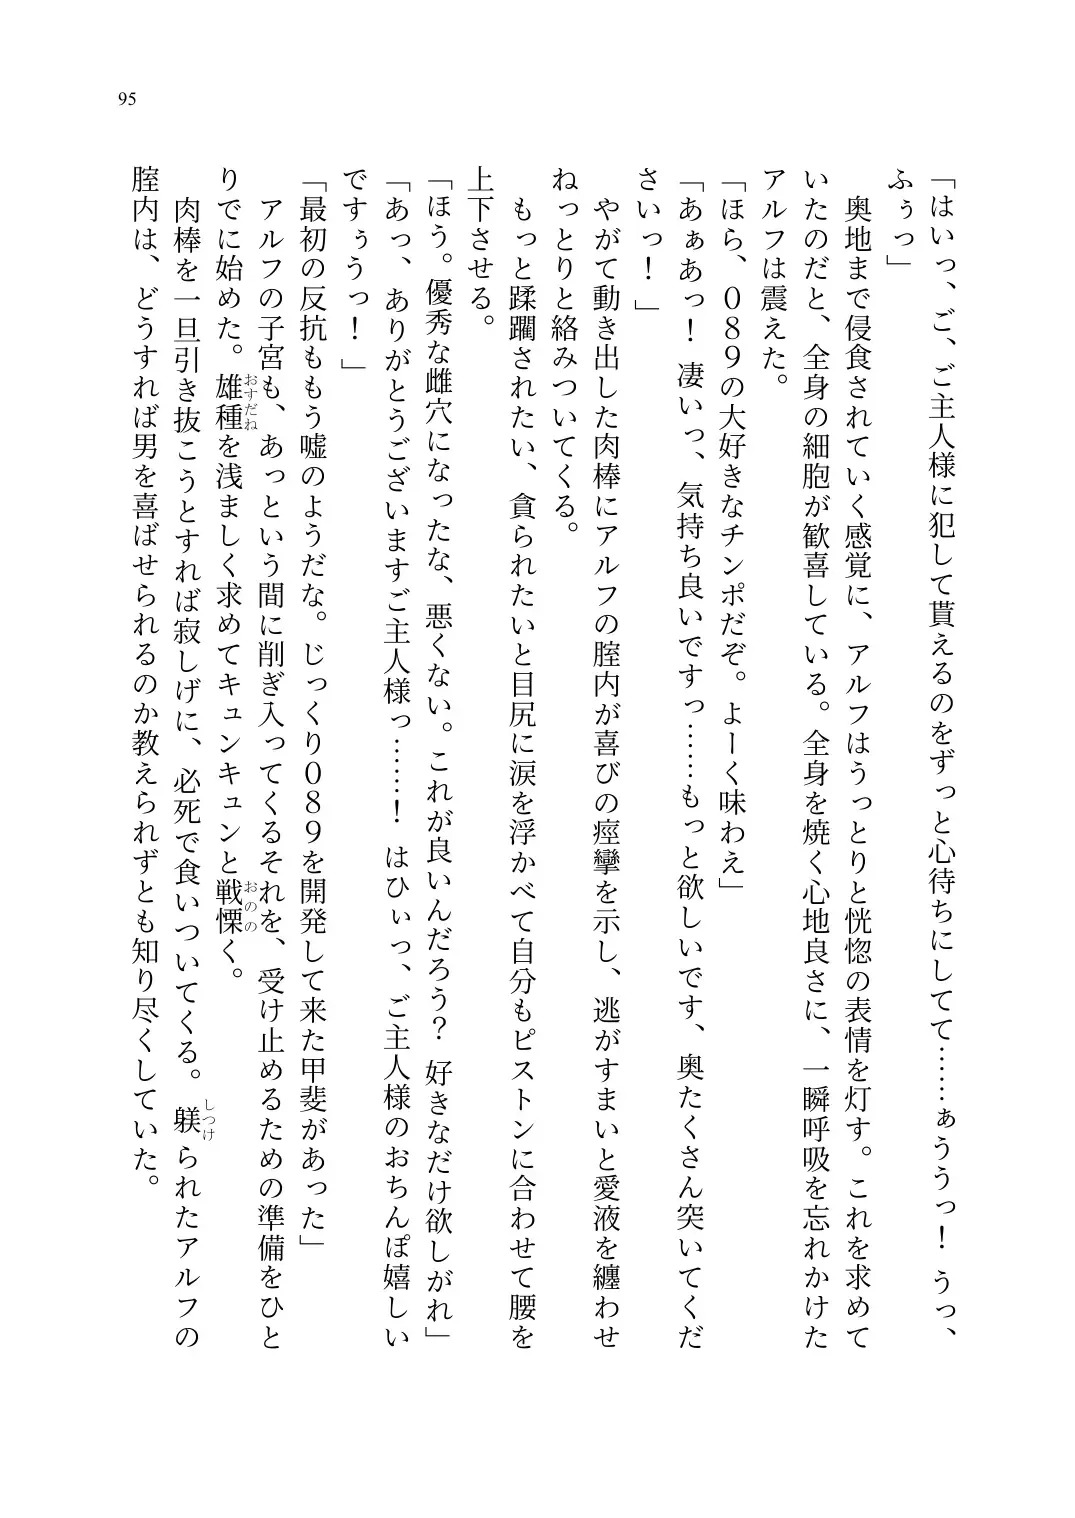 95
「はいっ、ご、ご主人様に犯して貰えるのをずっと心待ちにしてて……ぁううっ！ うっ、
ふぅっ」
奥地まで侵食されていく感覚に、アルフはうっとりと恍惚の表情を灯す。これを求めて
いたのだと、全身の細胞が歓喜している。全身を焼く心地良さに、一瞬呼吸を忘れかけた
アルフは震えた。
「ほら、０８９の大好きなチンポだぞ。よーく味わえ」
「あぁあっ！ 凄いっ、気持ち良いですっ……もっと欲しいです、奥たくさん突いてくだ
さいっ！」
やがて動き出した肉棒にアルフの腟内が喜びの痙攣を示し、逃がすまいと愛液を纏わせ
ねっとりと絡みついてくる。
もっと蹂躙されたい、貪られたいと目尻に涙を浮かべて自分もピストンに合わせて腰を
上下させる。
「ほう。優秀な雌穴になったな、悪くない。これが良いんだろう？ 好きなだけ欲しがれ」
「あっ、ありがとうございますご主人様っ……！ はひぃっ、ご主人様のおちんぽ嬉しい
ですぅうっ！」
「最初の反抗ももう嘘のようだな。じっくり０８９を開発して来た甲斐があった」
アルフの子宮も、あっという間に削ぎ入ってくるそれを、受け止めるための準備をひと
おすだね
おのの
りでに始めた。雄種を浅ましく求めてキュンキュンと戦慄く。
しつけ
肉棒を一旦引き抜こうとすれば寂しげに、必死で食いついてくる。躾られたアルフの
腟内は、どうすれば男を喜ばせられるのか教えられずとも知り尽くしていた。